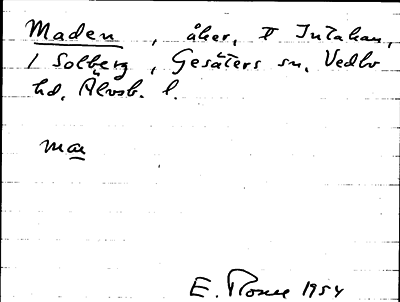 Maden, åker, II Intakan,
1 Solberg, Gesäters sn, Vedbo
hd, Älvsb. l.
ma
E. 1954